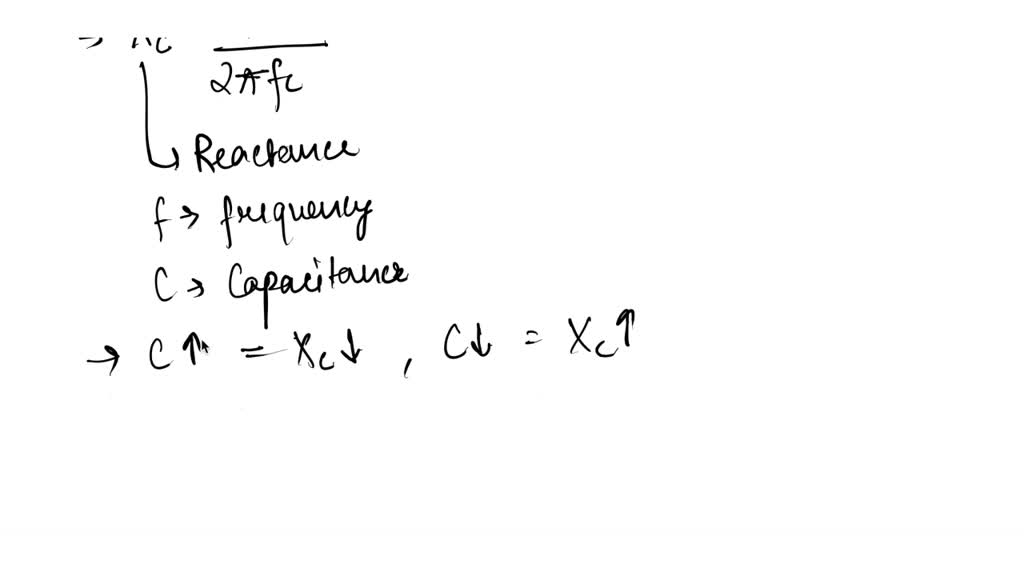 → Xc
2πfc
↳ Reactance
f → frequency
C → Capacitance
→ C↑ = Xc↓ , C↓ = Xc↑